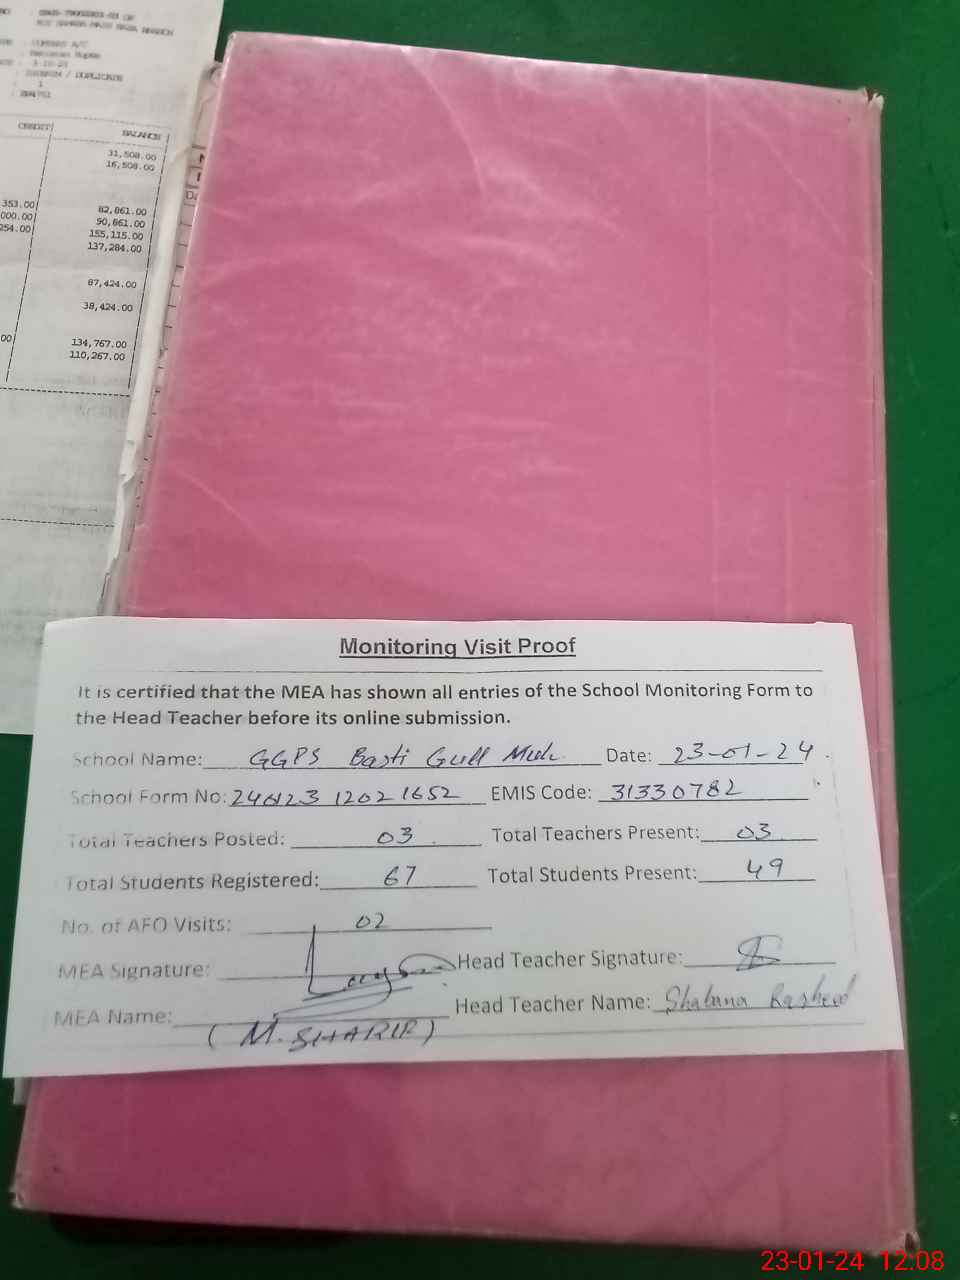 31,508.00
16,508.00
CREDIT BALANCE
353.00 82,861.00
000.00 90,861.00
254.00 155,115.00
137,284.00
87,424.00
38,424.00
00 134,767.00
110,267.00
Monitoring Visit Proof
It is certified that the MEA has shown all entries of the School Monitoring Form to
the Head Teacher before its online submission.
School Name: GGPS Basti Gull Muh. Date: 23-01-24
School Form No: 240123 1202 1652 EMIS Code: 31330782
Total Teachers Posted: 03 Total Teachers Present: 03
Total Students Registered: 67 Total Students Present: 49
No. of AFO Visits: 02
MEA Signature: Head Teacher Signature:
MEA Name: (M. SHARIF) Head Teacher Name: Shabana Rasheed
23-01-24 12:08